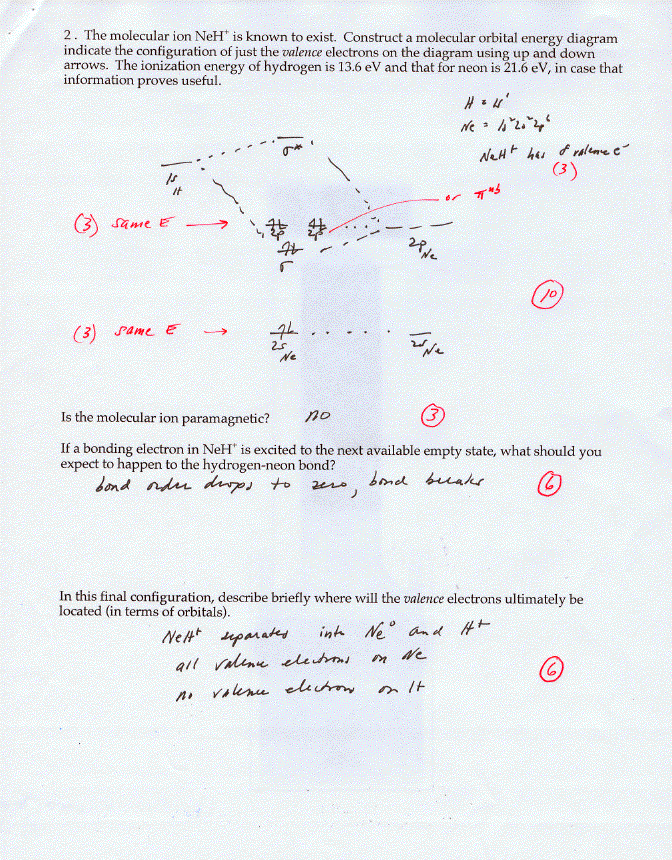 2. The molecular ion NeH⁺ is known to exist. Construct a molecular orbital energy diagram
indicate the configuration of just the valence electrons on the diagram using up and down
arrows. The ionization energy of hydrogen is 13.6 eV and that for neon is 21.6 eV, in case that
information proves useful.
H = 1s¹
Ne = 1s²2s²2p⁶
NeH⁺ has 8 valence e⁻
(3)
σ*
1s
H
or π nb
(3) same E →
2p 2p
2p Ne
σ
(10)
(3) same E →
2s
Ne
2s Ne
Is the molecular ion paramagnetic? no (3)
If a bonding electron in NeH⁺ is excited to the next available empty state, what should you
expect to happen to the hydrogen-neon bond?
bond order drops to zero, bond breaks (6)
In this final configuration, describe briefly where will the valence electrons ultimately be
located (in terms of orbitals).
NeH⁺ separates into Ne⁰ and H⁺
all valence electrons on Ne
no valence electrons on H
(6)